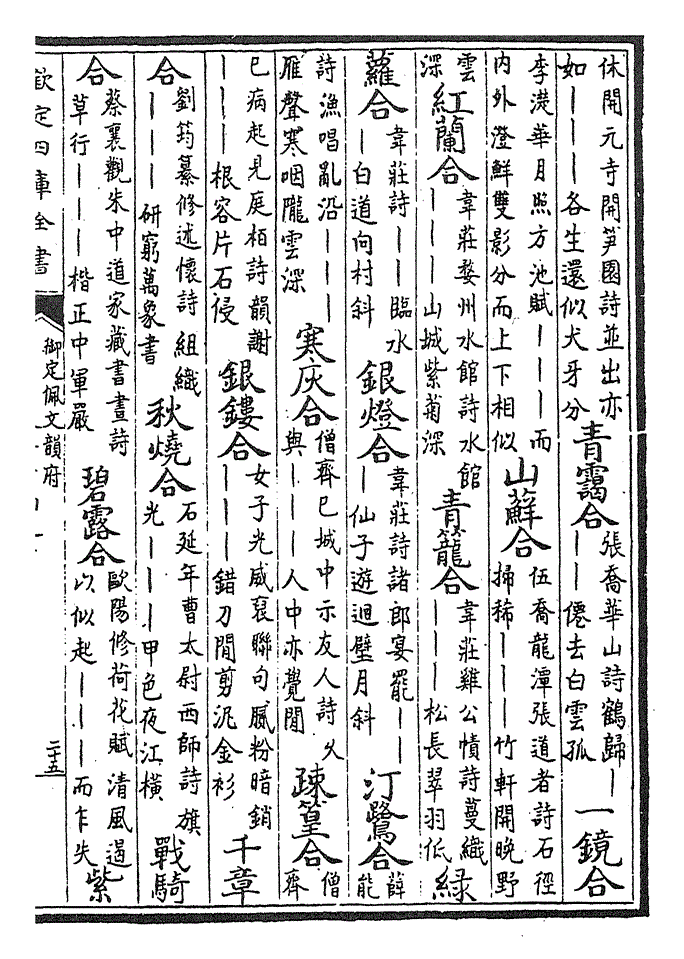 休開元寺開笋園詩並出亦
如｜｜｜各生還似犬牙分
青靄合
張喬華山詩鶴歸｜
｜｜僊去白雲孤
一鏡合
李濙華月照方池賦｜｜｜而
內外澄鮮雙影分而上下相似
山蘚合
伍喬龍潭張道者詩石徑
掃稀｜｜｜竹軒開晚野
雲
深
紅蘭合
韋莊婺州水館詩水館
｜｜｜山城紫菊深
青籠合
韋莊雞公幘詩蔓織
｜｜｜松長翠羽低
綠
蘿合
韋莊詩｜｜臨水
｜白道向村斜
銀燈合
韋莊詩諸郎宴罷｜｜
｜仙子遊迴璧月斜
汀鷺合
薛
能
詩漁唱亂沿｜｜｜
雁聲寒咽隴雲深
寒灰合
僧齊已城中示友人詩乆
與｜｜｜人中亦覺閒
疎篁合
僧
齊
已病起見庭栢詩韻謝
｜｜｜根容片石侵
銀鏤合
女子光威裒聯句膩粉暗銷
｜｜｜錯刀閒剪泥金衫
千章
合
劉筠纂修述懷詩組織
｜｜｜研窮萬象書
秋燒合
石延年曹太尉西師詩旗
光｜｜｜甲色夜江橫
戰騎
合
蔡襄觀朱中道家藏書畫詩
草行｜｜｜楷正中軍嚴
碧露合
歐陽修荷花賦清風過
以似起｜｜｜而乍失
紫
欽定四庫全書
御定佩文韻府
二十五